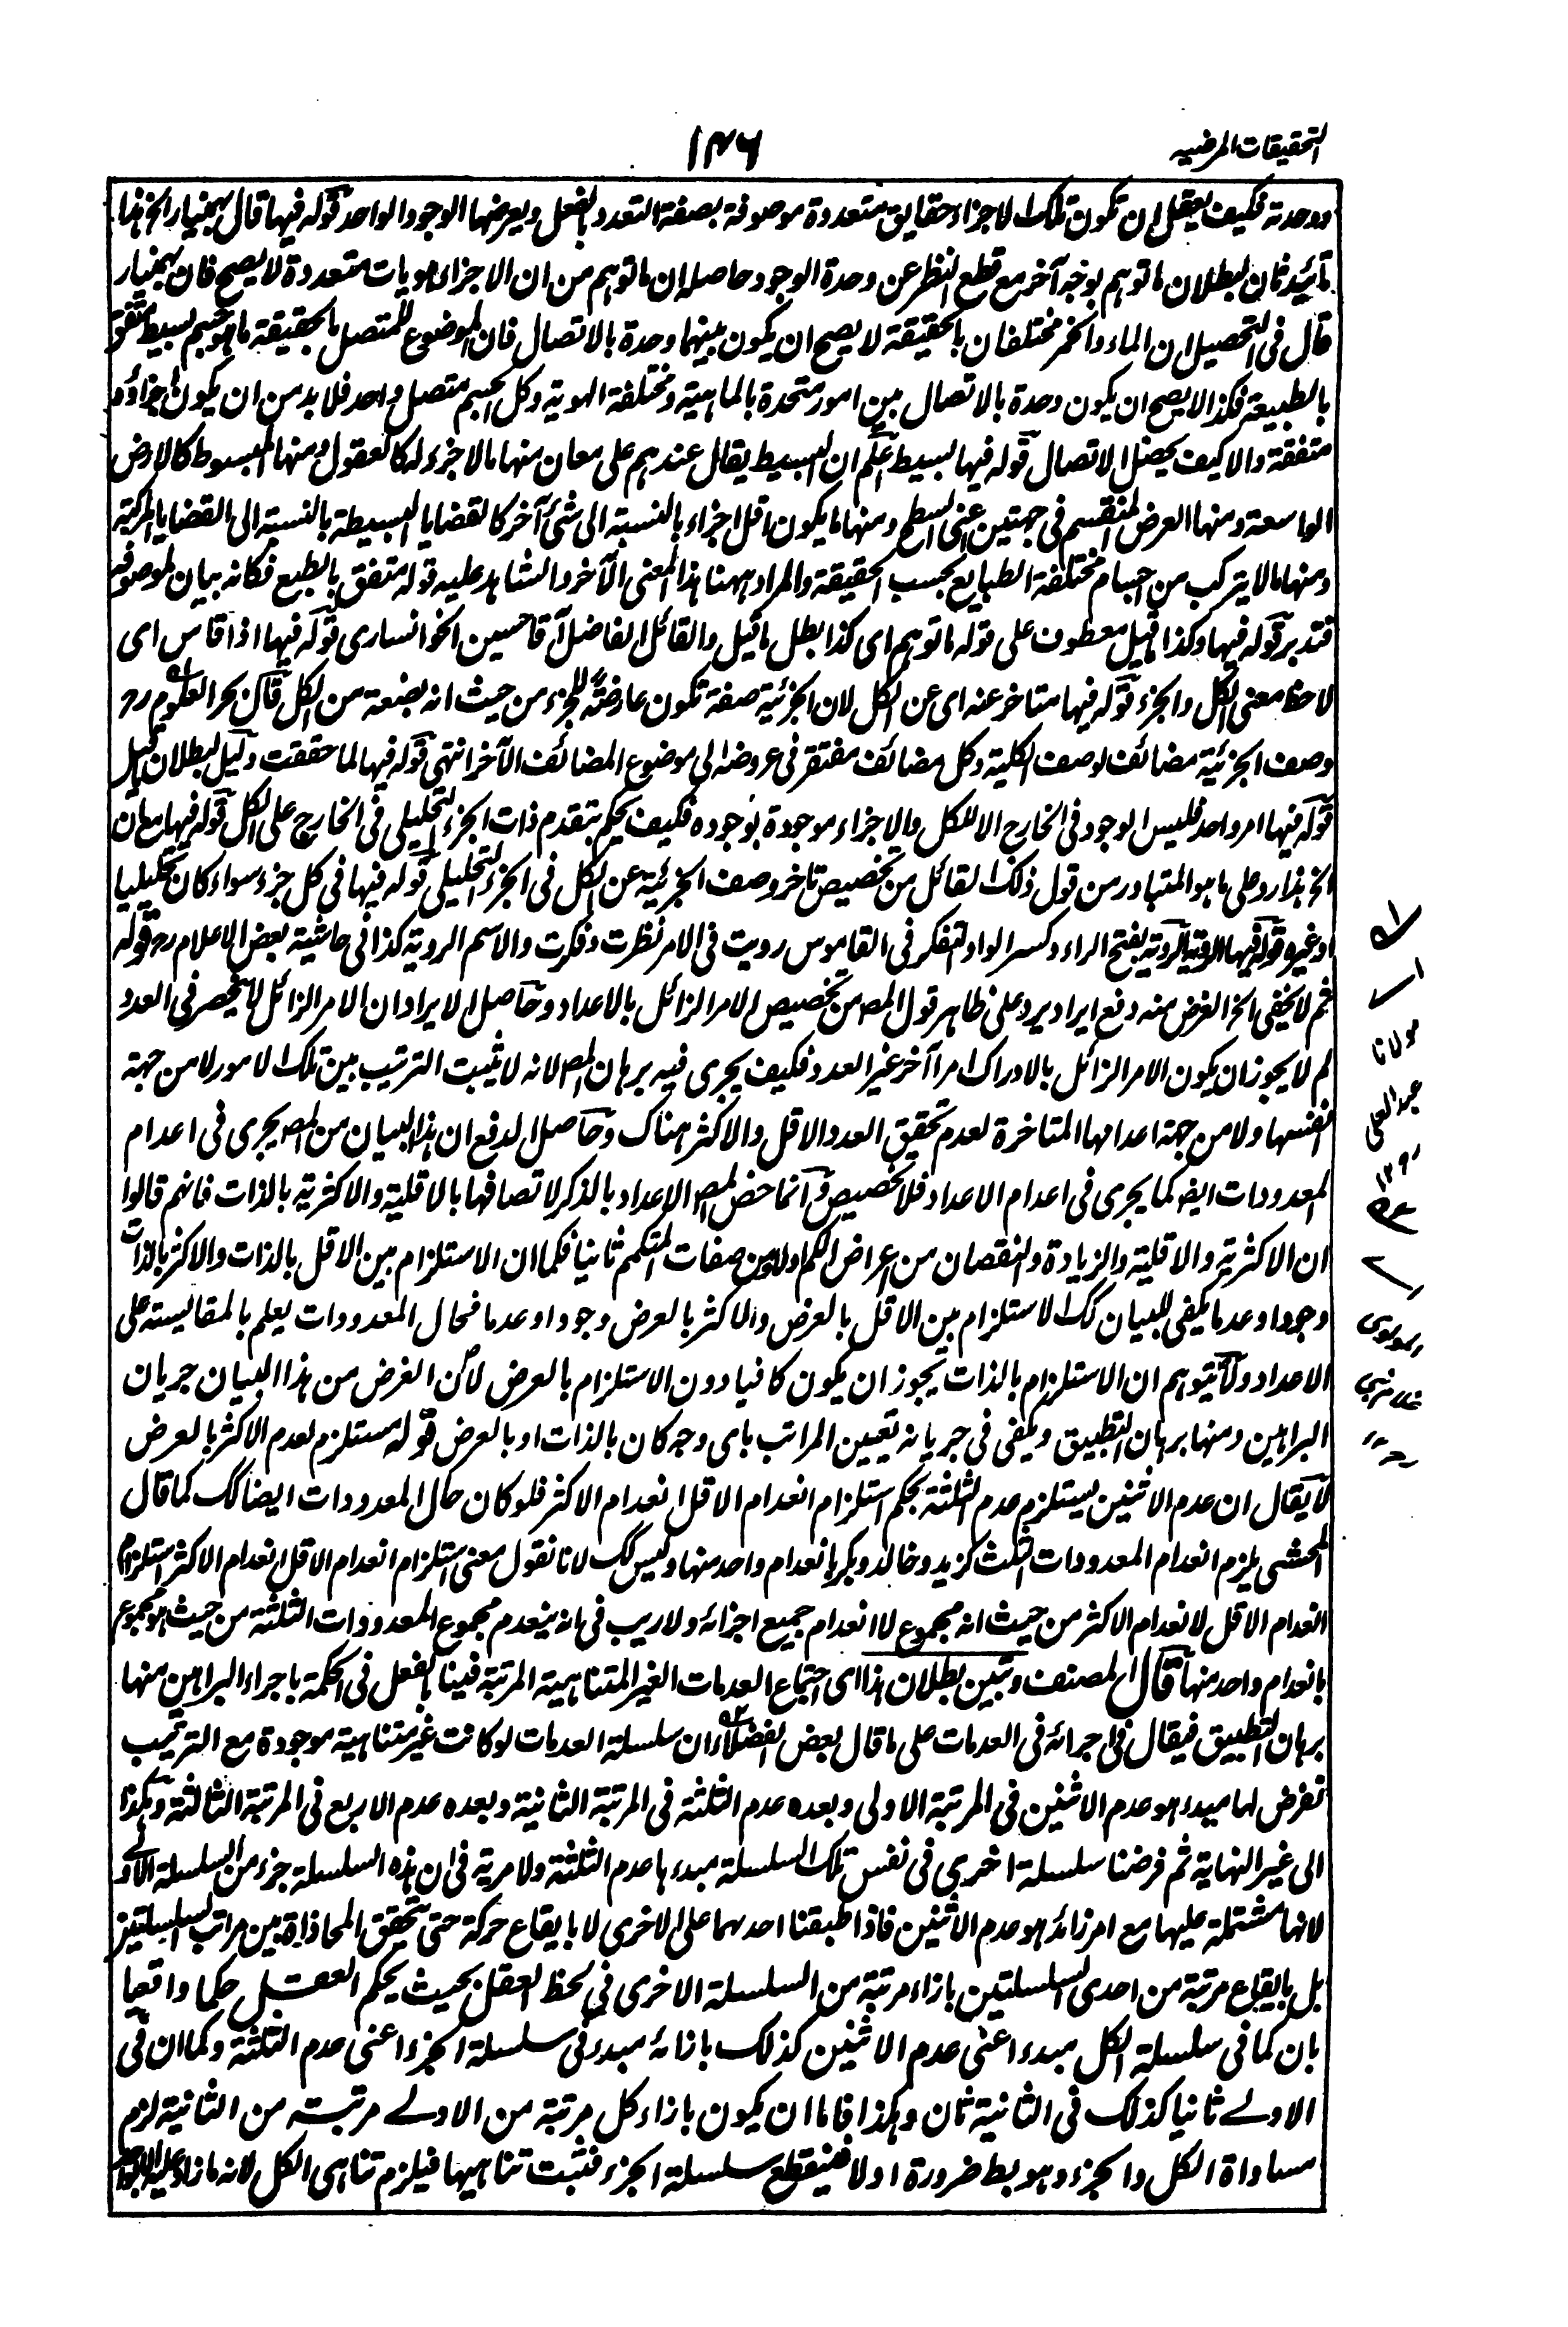 التحقيقات المرضيه
١٤٦
ووحدته فكيف يعقل ان تكون تلك الاجزاء حقايق متعددة موصوفة بصفة التعدد بالفعل ويعرضها الوجود الواحد قوله فيها قال بهمنيار الخ هذا
تائيد ثان لبطلان ما توهم بوجه آخر مع قطع النظر عن وحدة الوجود حاصله ان ما توهم من ان الاجزاء هويات متعددة لا يصح فان بهمنيار
قال فى التحصيل ان الماء والخمر مختلفان بالحقيقة لا يصح ان يكون بينهما وحدة بالاتصال فان الموضوع للمتصل بالحقيقة ما هو جسم بسيط متفق
بالطبيعة فكذا لا يصح ان يكون وحدة بالاتصال بين امور متحدة بالماهية ومختلفة الهوية وكل الجسم متصل واحد فلا بد من ان يكون اجزاؤه
متفقة والا كيف يحصل الاتصال قوله فيها بسيط اعلم ان البسيط يقال عندهم على معان منها ما لا جزء له كالعقول ومنها المبسوط كالارض
الواسعة ومنها العرض المنقسم فى جهتين اعنى السطح ومنها ما يكون اقل اجزاء بالنسبة الى شئ آخر كالقضايا البسيطة بالنسبة الى القضايا المركبة
ومنها ما لا يتركب من اجسام مختلفة الطبايع بحسب الحقيقة والمراد ههنا هذا المعنى الآخر والشاهد عليه قوله متفق بالطبع فكانه بيان لموصوفه
فتدبر قوله فيها وكذا ما قيل معطوف على قوله ما توهم اى كذا بطل ما قيل والقائل الفاضل آقا حسين الخوانسارى قوله فيها اذا قاس اى
لاحظ معنى الكل والجزء قوله فيها متاخر عنه اى عن الكل لان الجزئية صفة تكون عارضة للجزء من حيث انه بضعة من الكل قال بحر العلوم رح
وصف الجزئية مضائف لوصف الكلية وكل مضائف مفتقر فى عروضه الى موضوع المضائف الآخر انتهى قوله فيها لما حققت دليل لبطلان قيل
قوله فيها امر واحد فليس الوجود فى الخارج الا للكل والاجزاء موجودة بوجوده فكيف يحكم بتقدم ذات الجزء التحليلى فى الخارج على الكل قوله فيها مع ان
الخ هذا رد على ما هو المتبادر من قول ذلك القائل من تخصيص تاخر وصف الجزئية عن الكل فى الجزء التحليلى قوله فيها فى كل جزء سواء كان تحليليا
او غيره قوله فيها الروية الروية بفتح الراء وكسر الواو التفكر فى القاموس رويت فى الامر نظرت وفكرت والاسم الروية كذا فى حاشية بعض الاعلام رح قوله
ثم لا يخفى الخ الغرض منه دفع ايراد يرد على ظاهر قول المص من تخصيص الامر الزائل بالاعداد وحاصل الايراد ان الامر الزائل لا ينحصر فى العدد
لم لا يجوز ان يكون الامر الزائل بالادراك امرا آخر غير العدد فكيف يجرى فيه برهان المص لانه لا يثبت الترتيب بين تلك الامور لا من جهة
انفسها ولا من جهة اعدامها المتاخرة لعدم تحقق العدد الاقل والاكثر هناك وحاصل الدفع ان هذا البيان من المص يجرى فى اعدام
المعدودات ايض كما يجرى فى اعدام الاعداد فلا تخصيص وانما خص المص الاعداد بالذكر لاتصافها بالاقلية والاكثرية بالذات فانهم قالوا
ان الاكثرية والاقلية والزيادة والنقصان من اعراض الكم اولا ومن صفات المتكمم ثانيا فكما ان الاستلزام بين الاقل بالذات والاكثر بالذات
وجودا وعدما يكفى للبيان كك الاستلزام بين الاقل بالعرض والاكثر بالعرض وجودا وعدما فحال المعدودات يعلم بالمقايسة على
الاعداد ولا تتوهم ان الاستلزام بالذات يجوز ان يكون كافيا دون الاستلزام بالعرض لان الغرض من هذا البيان جريان
البراهين ومنها برهان التطبيق ويكفى فى جريانه تعيين المراتب باى وجه كان بالذات او بالعرض قوله مستلزم لعدم الاكثر بالعرض
لا يقال ان عدم الاثنين يستلزم عدم الثلثة بحكم استلزام انعدام الاقل انعدام الاكثر فلو كان حال المعدودات ايضا كك كما قال
المحشى يلزم انعدام المعدودات الثلث كزيد وخالد وبكر بانعدام واحد منها وليس كك لانا نقول معنى استلزام انعدام الاقل انعدام الاكثر استلزام
انعدام الاقل لانعدام الاكثر من حيث انه مجموع لا انعدام جميع اجزائه ولا ريب فى انه ينعدم مجموع المعدودات الثلثة من حيث هو مجموع
بانعدام واحد منها قال المصنف وتبين بطلان هذا اى اجتماع العدمات الغير المتناهية المرتبة فينا بالفعل فى الحكمة باجراء البراهين منها
برهان التطبيق فيقال فى اجرائه فى العدمات على ما قال بعض الفضلاء ان سلسلة العدمات لو كانت غير متناهية موجودة مع الترتيب
نفرض لها مبدء هو عدم الاثنين فى المرتبة الاولى وبعده عدم الثلثة فى المرتبة الثانية وبعده عدم الاربع فى المرتبة الثالثة وهكذا
الى غير النهاية ثم فرضنا سلسلة اخرى فى نفس تلك السلسلة مبدءها عدم الثلثة ولا مرية فى ان هذه السلسلة جزء من السلسلة الاولى
لانها مشتملة عليها مع امر زائد هو عدم الاثنين فاذا طبقنا احدهما على الاخرى لا بايقاع حركة حتى تحقق المحاذاة بين مراتب السلسلتين
بل بايقاع مرتبة من احدى السلسلتين بازاء مرتبة من السلسلة الاخرى فى لحظ العقل بحيث يحكم العقل حكما واقعيا
بان كما فى سلسلة الكل مبدء اعنى عدم الاثنين كذلك بازائه مبدء فى سلسلة الجزء اعنى عدم الثلثة وكما ان فى
الاولے ثانيا كذلك فى الثانية ثان وهكذا فاما ان يكون بازاء كل مرتبة من الاولے مرتبة من الثانية لزم
مساواة الكل والجزء وهو بط ضرورة او لا فينقطع سلسلة الجزء فثبت تناهيها فيلزم تناهى الكل لانه ما زاد عليه الا
مولانا
عبد العلى